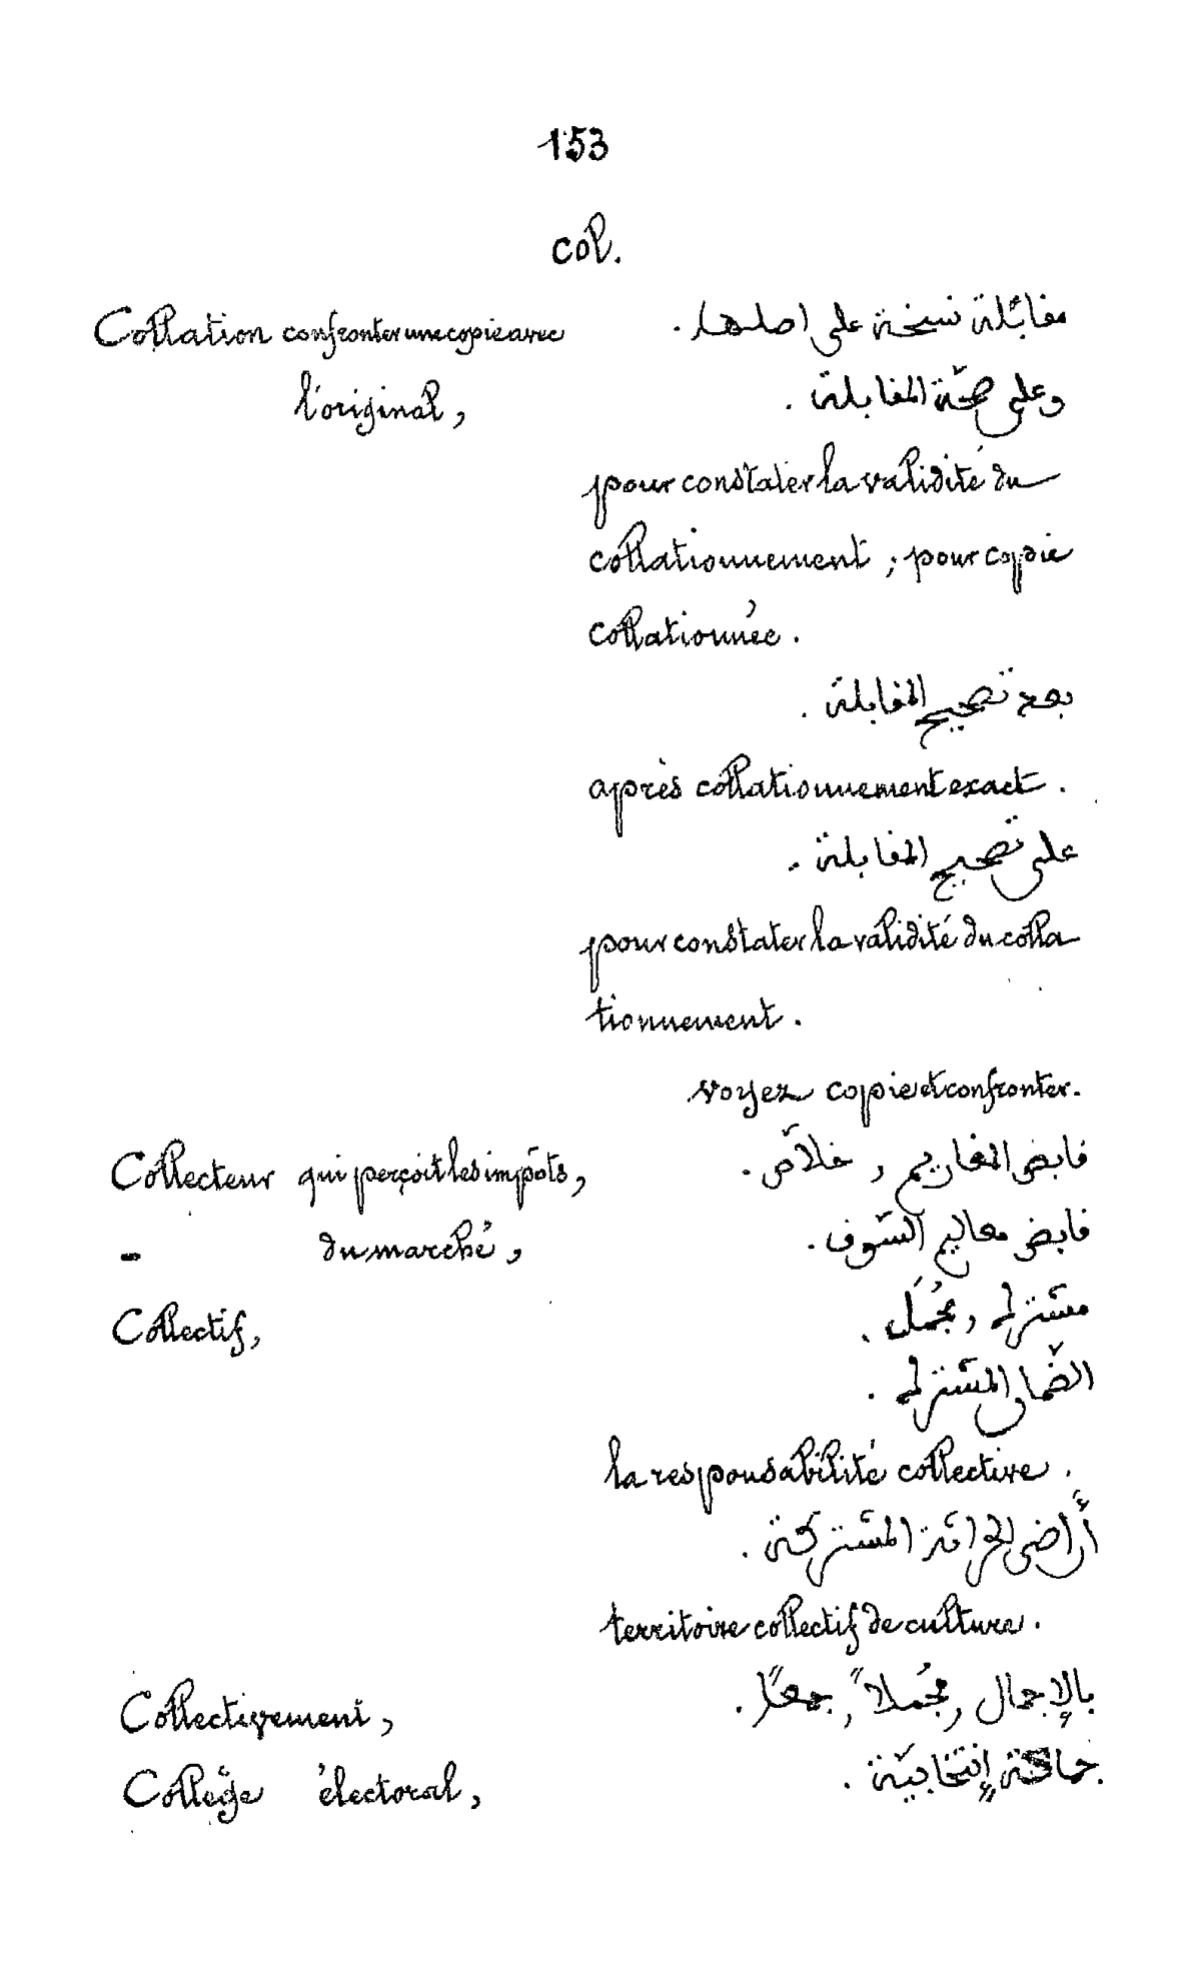 153
Col.
Collation confronter une copie avec مقابلة نسخة على اصلها.
l'original, وعلى صحّة المقابلة.
pour constater la validité du
collationnement ; pour copie
collationnée.
بعد تصحيح المقابلة.
après collationnement exact.
على تصحيح المقابلة.
pour constater la validité du colla
tionnement.
voyez copie et confronter.
Collecteur qui perçoit les impôts, قابض المغاريم , خلّاص.
- du marché, قابض معاليم السّوق.
Collectif, مشترك , مجُمَل.
الضّمان المشترك.
la responsabilité collective.
أراضى الحراثة المشتركة.
territoire collectif de culture.
Collectivement, بالإجمال , مجُملاً , جمعًا.
Collège électoral, جماعة إنتخابيّة.